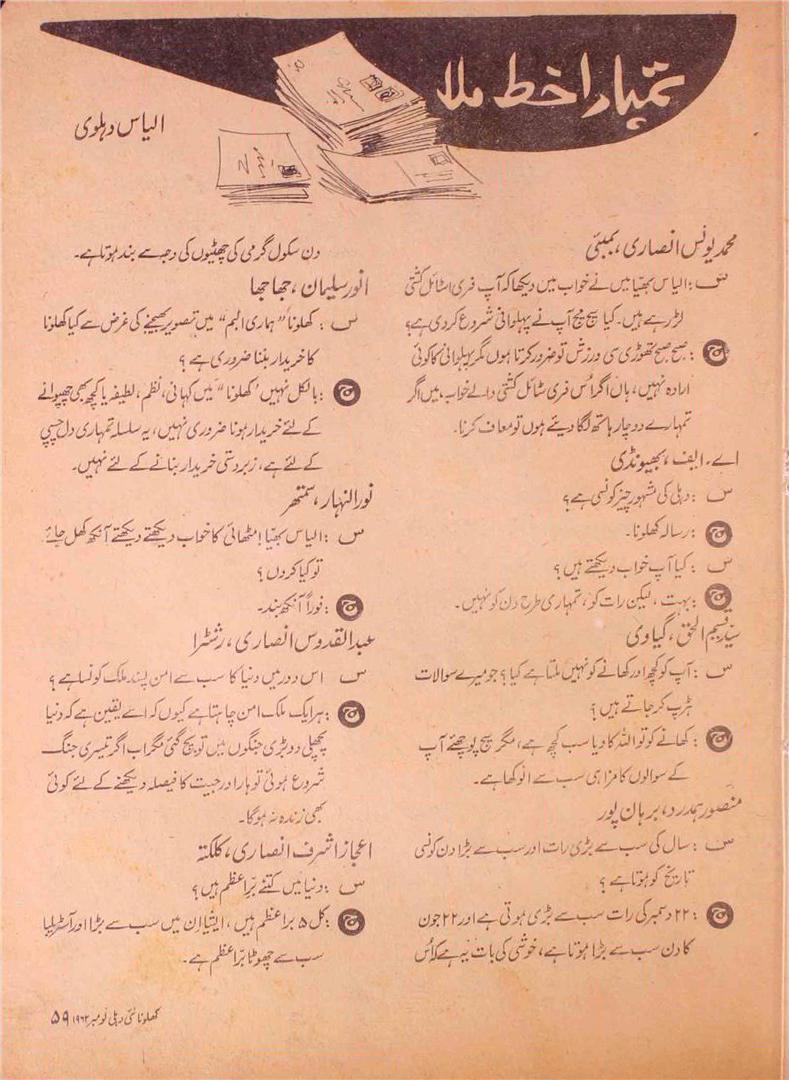 تمہارا خط ملا
الیاس دہلوی
محمد یونس انصاری، بمبئی
س : الیاس بھیّا میں نے خواب میں دیکھا کہ آپ فری اسٹائل کشتی
لڑ رہے ہیں۔ کیا سچ مچ آپ نے پہلوانی شروع کر دی ہے؟
ج : صبح صبح تھوڑی سی ورزش تو ضرور کرتا ہوں مگر پہلوانی کا کوئی
ارادہ نہیں، ہاں اگر اُس فری سٹائل کشتی والے خواب میں اگر
تمہارے دو چار ہاتھ لگا دیئے ہوں تو معاف کرنا۔
اے۔ ایف، بھیونڈی
س : دہلی کی مشہور چیز کونسی ہے؟
ج : رسالہ کھلونا۔
س : کیا آپ خواب دیکھتے ہیں؟
ج : بہت، لیکن رات کو، تمہاری طرح دن کو نہیں۔
سیّد قسیم الحق، گیاوی
س : آپ کو کچھ اور کھانے کو نہیں ملتا ہے کیا؟ جو میرے سوالات
ہڑپ کر جاتے ہیں؟
ج : کھانے کو تو اللہ کا دیا سب کچھ ہے، مگر سچ پوچھئے آپ
کے سوالوں کا مزا ہی سب سے انوکھا ہے۔
منصور ہمدرد، برہان پور
س : سال کی سب سے بڑی رات اور سب سے بڑا دن کونسی
تاریخ کو ہوتا ہے؟
ج : ۲۲ دسمبر کی رات سب سے بڑی ہوتی ہے اور ۲۲ جون
کا دن سب سے بڑا ہوتا ہے، خوشی کی بات یہ ہے کہ اُس
دن سکول گرمی کی چھٹیوں کی وجہ سے بند ہوتا ہے۔
انور سلیمان، جھاجھا
س : کھلونا "ہماری البم" میں تصویر بھیجنے کی غرض سے کیا کھلونا
کا خریدار بننا ضروری ہے؟
ج : بالکل نہیں "کھلونا" میں کہانی، نظم، لطیفہ یا کچھ بھی چھپوانے
کے لئے خریدار ہونا ضروری نہیں، یہ سلسلہ تمہاری دل چسپی
کے لئے ہے، زبردستی خریدار بنانے کے لئے نہیں۔
نور النہار، سمتھر
س : الیاس بھیّا! مٹھائی کا خواب دیکھتے دیکھتے آنکھ کھل جائے
تو کیا کروں؟
ج : فوراً آنکھ بند۔
عبد القدوس انصاری، رشڑا
س : اس دور میں دنیا کا سب سے امن پسند ملک کونسا ہے؟
ج : ہر ایک ملک امن چاہتا ہے کیوں کہ اُسے یقین ہے کہ دنیا
پچھلی دو بڑی جنگوں میں تو بچ گئی مگر اب اگر تیسری جنگ
شروع ہوئی تو ہار اور جیت کا فیصلہ دیکھنے کے لئے کوئی
بھی زندہ نہ ہوگا۔
اعجاز اشرف انصاری، کلکتہ
س : دنیا میں کتنے برّاعظم ہیں؟
ج : کل ۵ براعظم ہیں، ایشیا ان میں سب سے بڑا اور آسٹریلیا
سب سے چھوٹا برّاعظم ہے۔
کھلونا نئی دہلی نومبر ۱۹۶۲ ۵۹